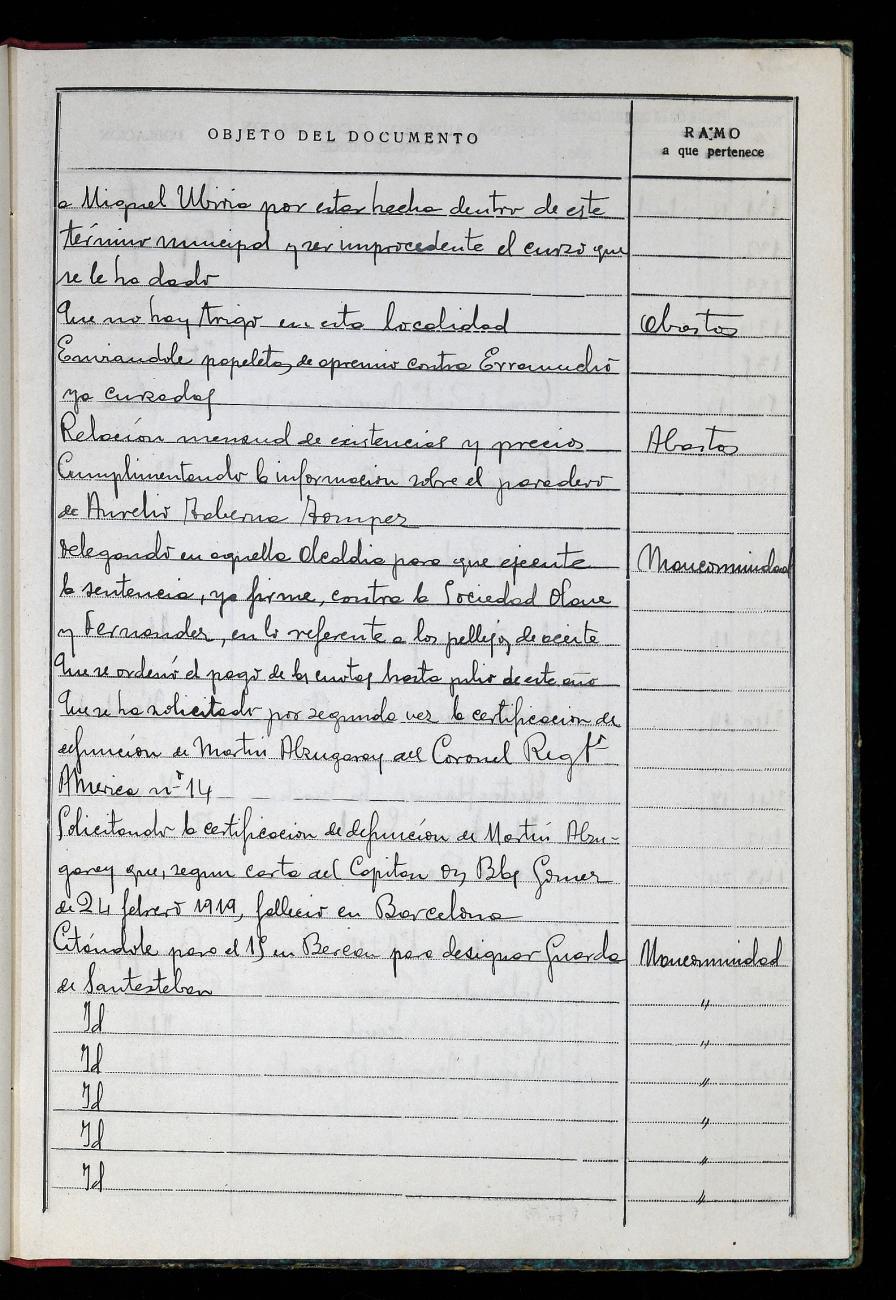 OBJETO DEL DOCUMENTO
RAMO
a que pertenece
a Miguel Ubiria por estar hecha dentro de este
término municipal y ser improcedente el curso que
se le ha dado
Que no hay trigo en esta localidad Abastos
Enviandole papeletas de apremio contra Erramuché
ya cursadas
Relación mensual de existencias y precios Abastos
Cumplimentando la informacion sobre el paradero
de Aurelio Taberna
Delegando en aquella Alcaldia para que ejecute Mancomunidad
la sentencia, ya firme, contra la Sociedad Olave
y Fernandez, en lo referente a los pellejos de aceite
Que se ordenó el pago de las cuotas hasta julio de este año
Que se ha solicitado por segunda vez la certificacion de
defunción de Martin Alzugaray del Coronel Regtº
America nº 14
Solicitando la certificacion de defunción de Martin Alzu-
garay que, segun carta del Capitan Dn Blas Gomez
de 24 febrero 1919, fallecio en Barcelona
Citándole para el 15 en Bereau para designar Guarda Mancomunidad
de Santesteban "
Id "
Id "
Id "
Id "
Id "